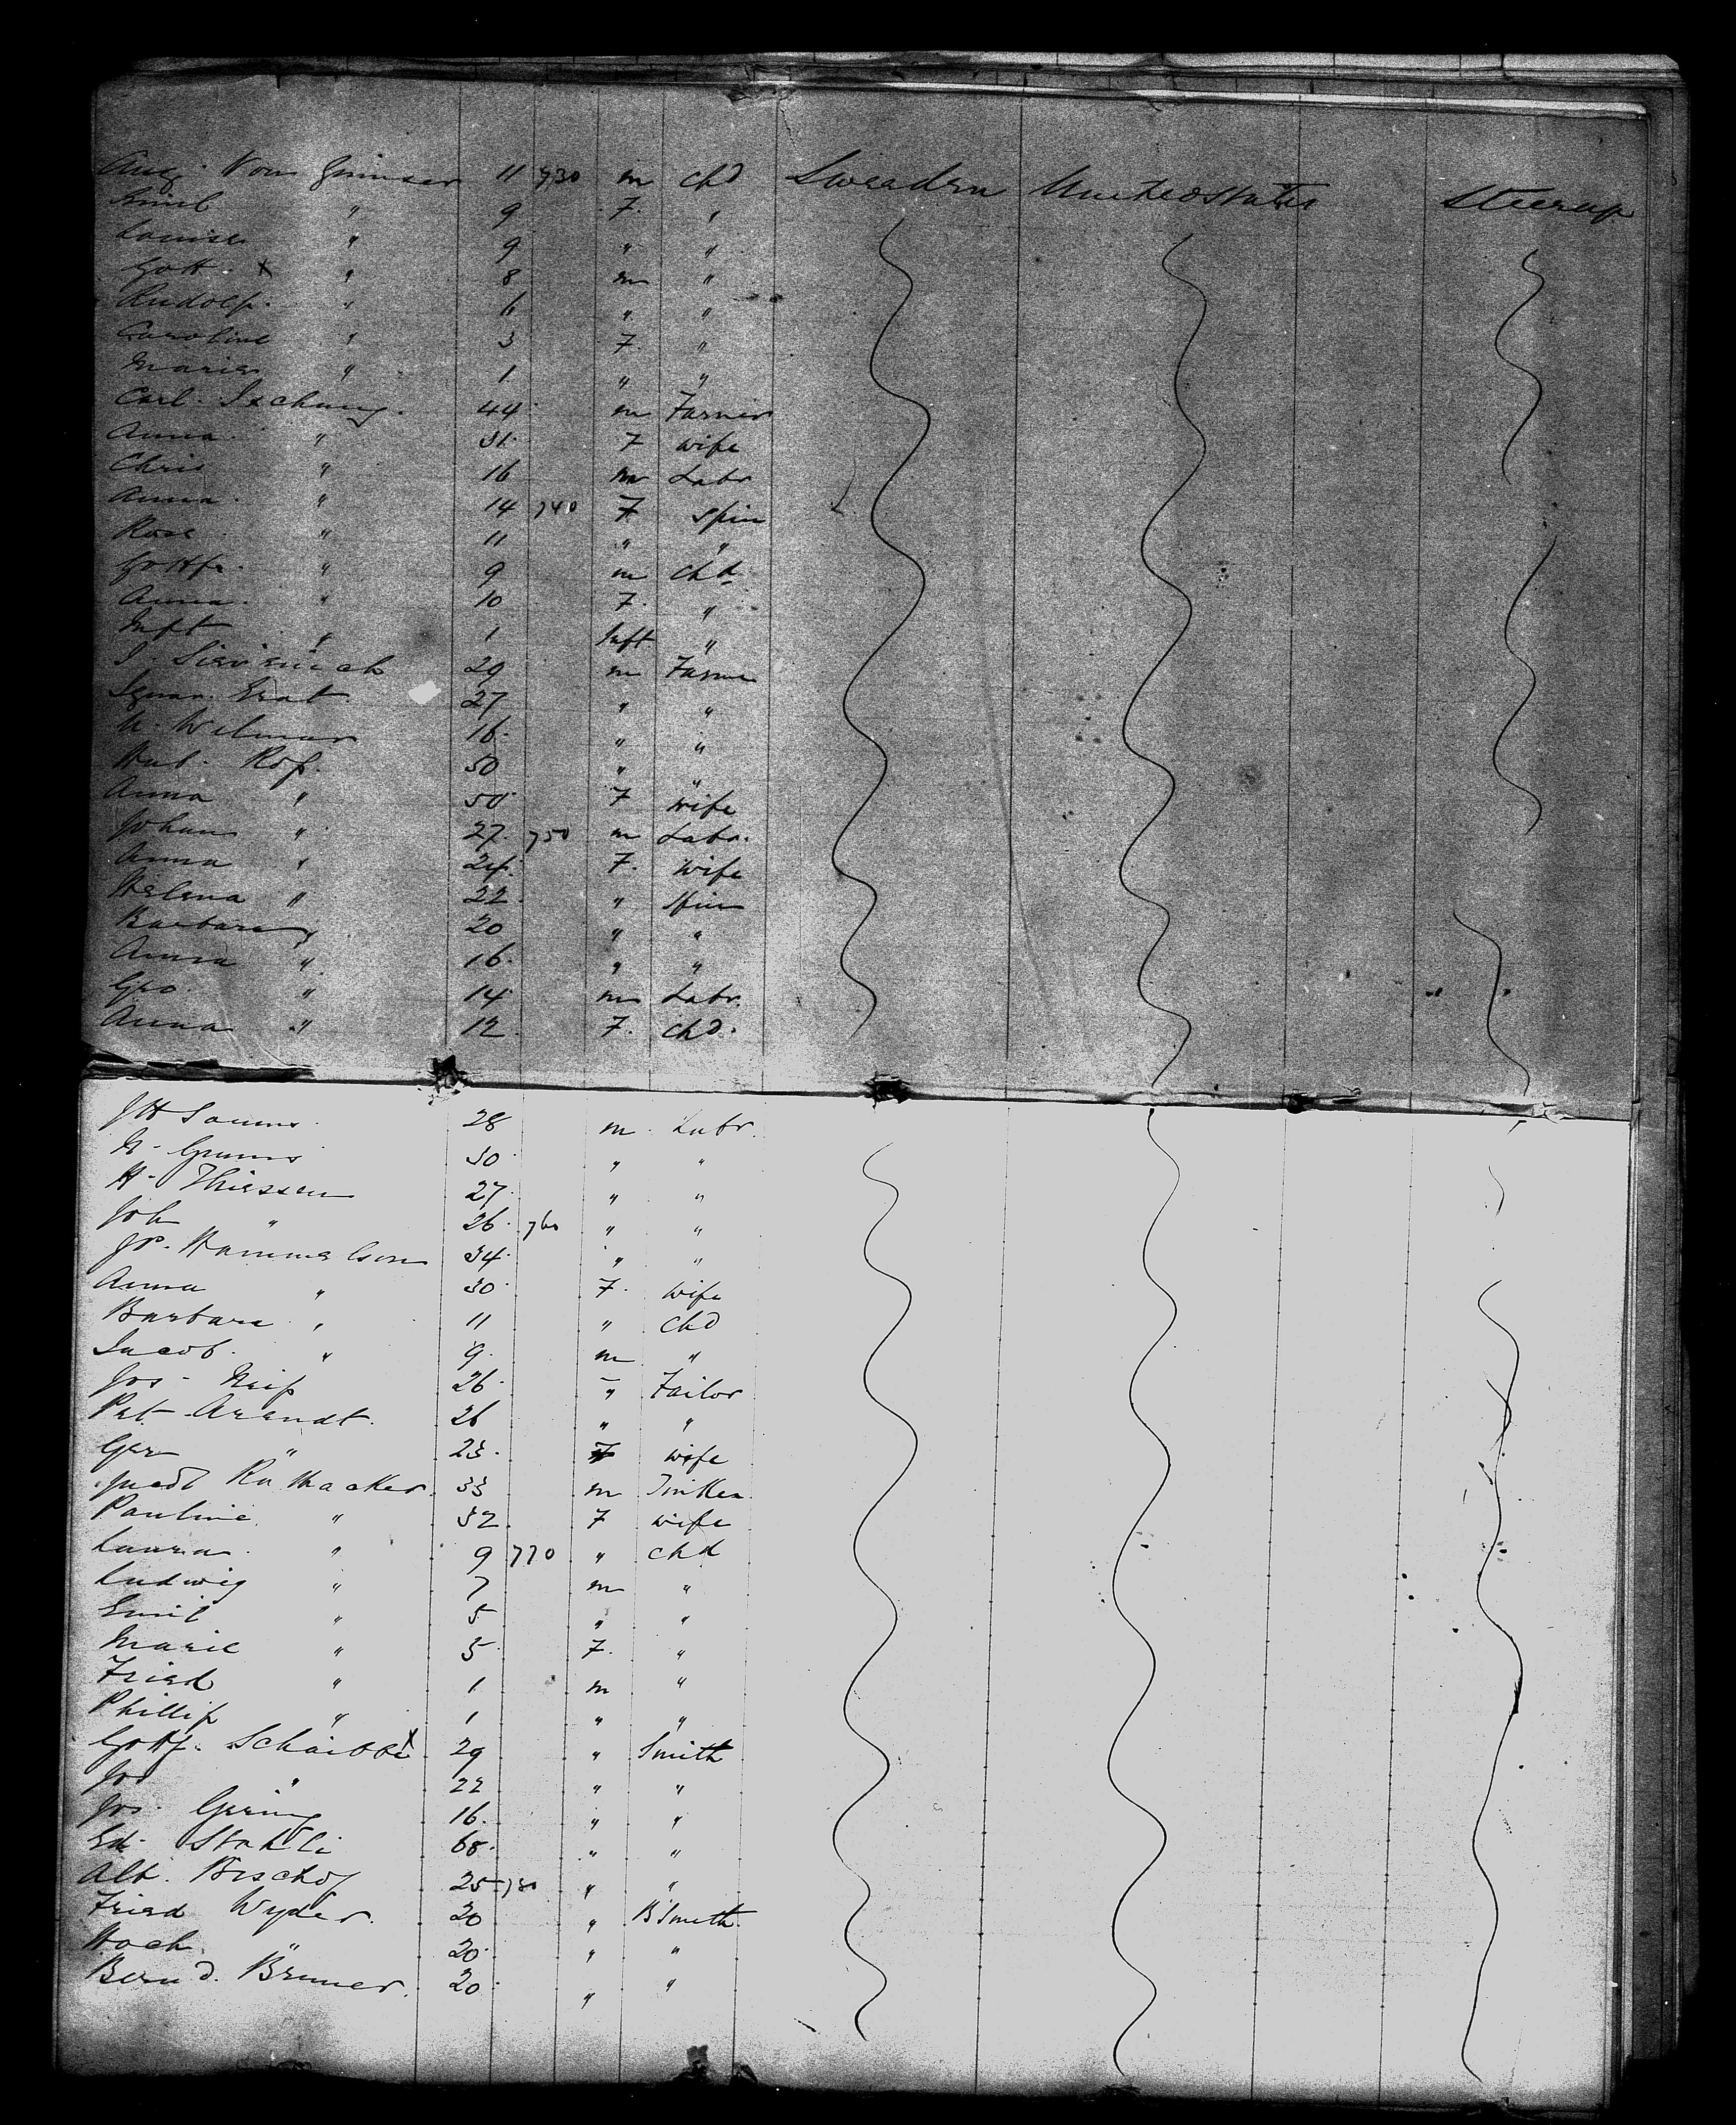 Aug. Von Grunser 11 730 m chd Sweaden United States Steerage
Emil " 9 7. "
Louisa " 9 " "
Gott. x " 8 m "
Rudolf. " 6 " "
Caroline " 3 7. "
Maria " 1 " "
Carl. Ischung. 44 m Farmer
Anna. " 31. 7 wife
Chris " 16 m Labr
Anna. " 14 740 7. Spin
Rose " 11 " "
Gottfr. " 9 m chd.
Anna. " 10 7. "
Inft " 1 Inft "
29 m Farme
27 " "
N. Welmar 16. " "
Hub. Rof. 50 " "
Anna " 50 7 wife
Johan " 27. 750 m Labr.
Anna " 24. 7. wife
Helena " 22. " Spin
Barbara " 20 " "
Anna " 16. " "
Geo. " 14 m Labr.
Anna " 12. 7. chd.
JH 28 m. Labr.
30. " "
H. Thiessen 27. " "
Joh " 26. 760 " "
JP. Hammelson 34. " "
Anna " 30. 7. wife
Barbara " 11 " chd
Jacob. " 9. m "
Jos. Neif 26. " Tailor
Pet. Arendt. 26 " "
Ger " 23. 7 wife
33 m
Pauline. " 32. 7 wife
Laura. " 9 770 " chd
Ludwig " 7 m "
Emil " 5 " "
Marie " 5. 7. "
Fried " 1 m "
Phillip " 1 " "
Gottf. Schaibbe x 29 " Smith
Jos " 22 " "
Jos. Gering 16. " "
Ed. Stahli 68. " "
Alb. Bischof 25 780 " "
Fried Wyder. 20 " B Smith.
Hoch. " 20. " "
Bernd. Bruner. 20. " "